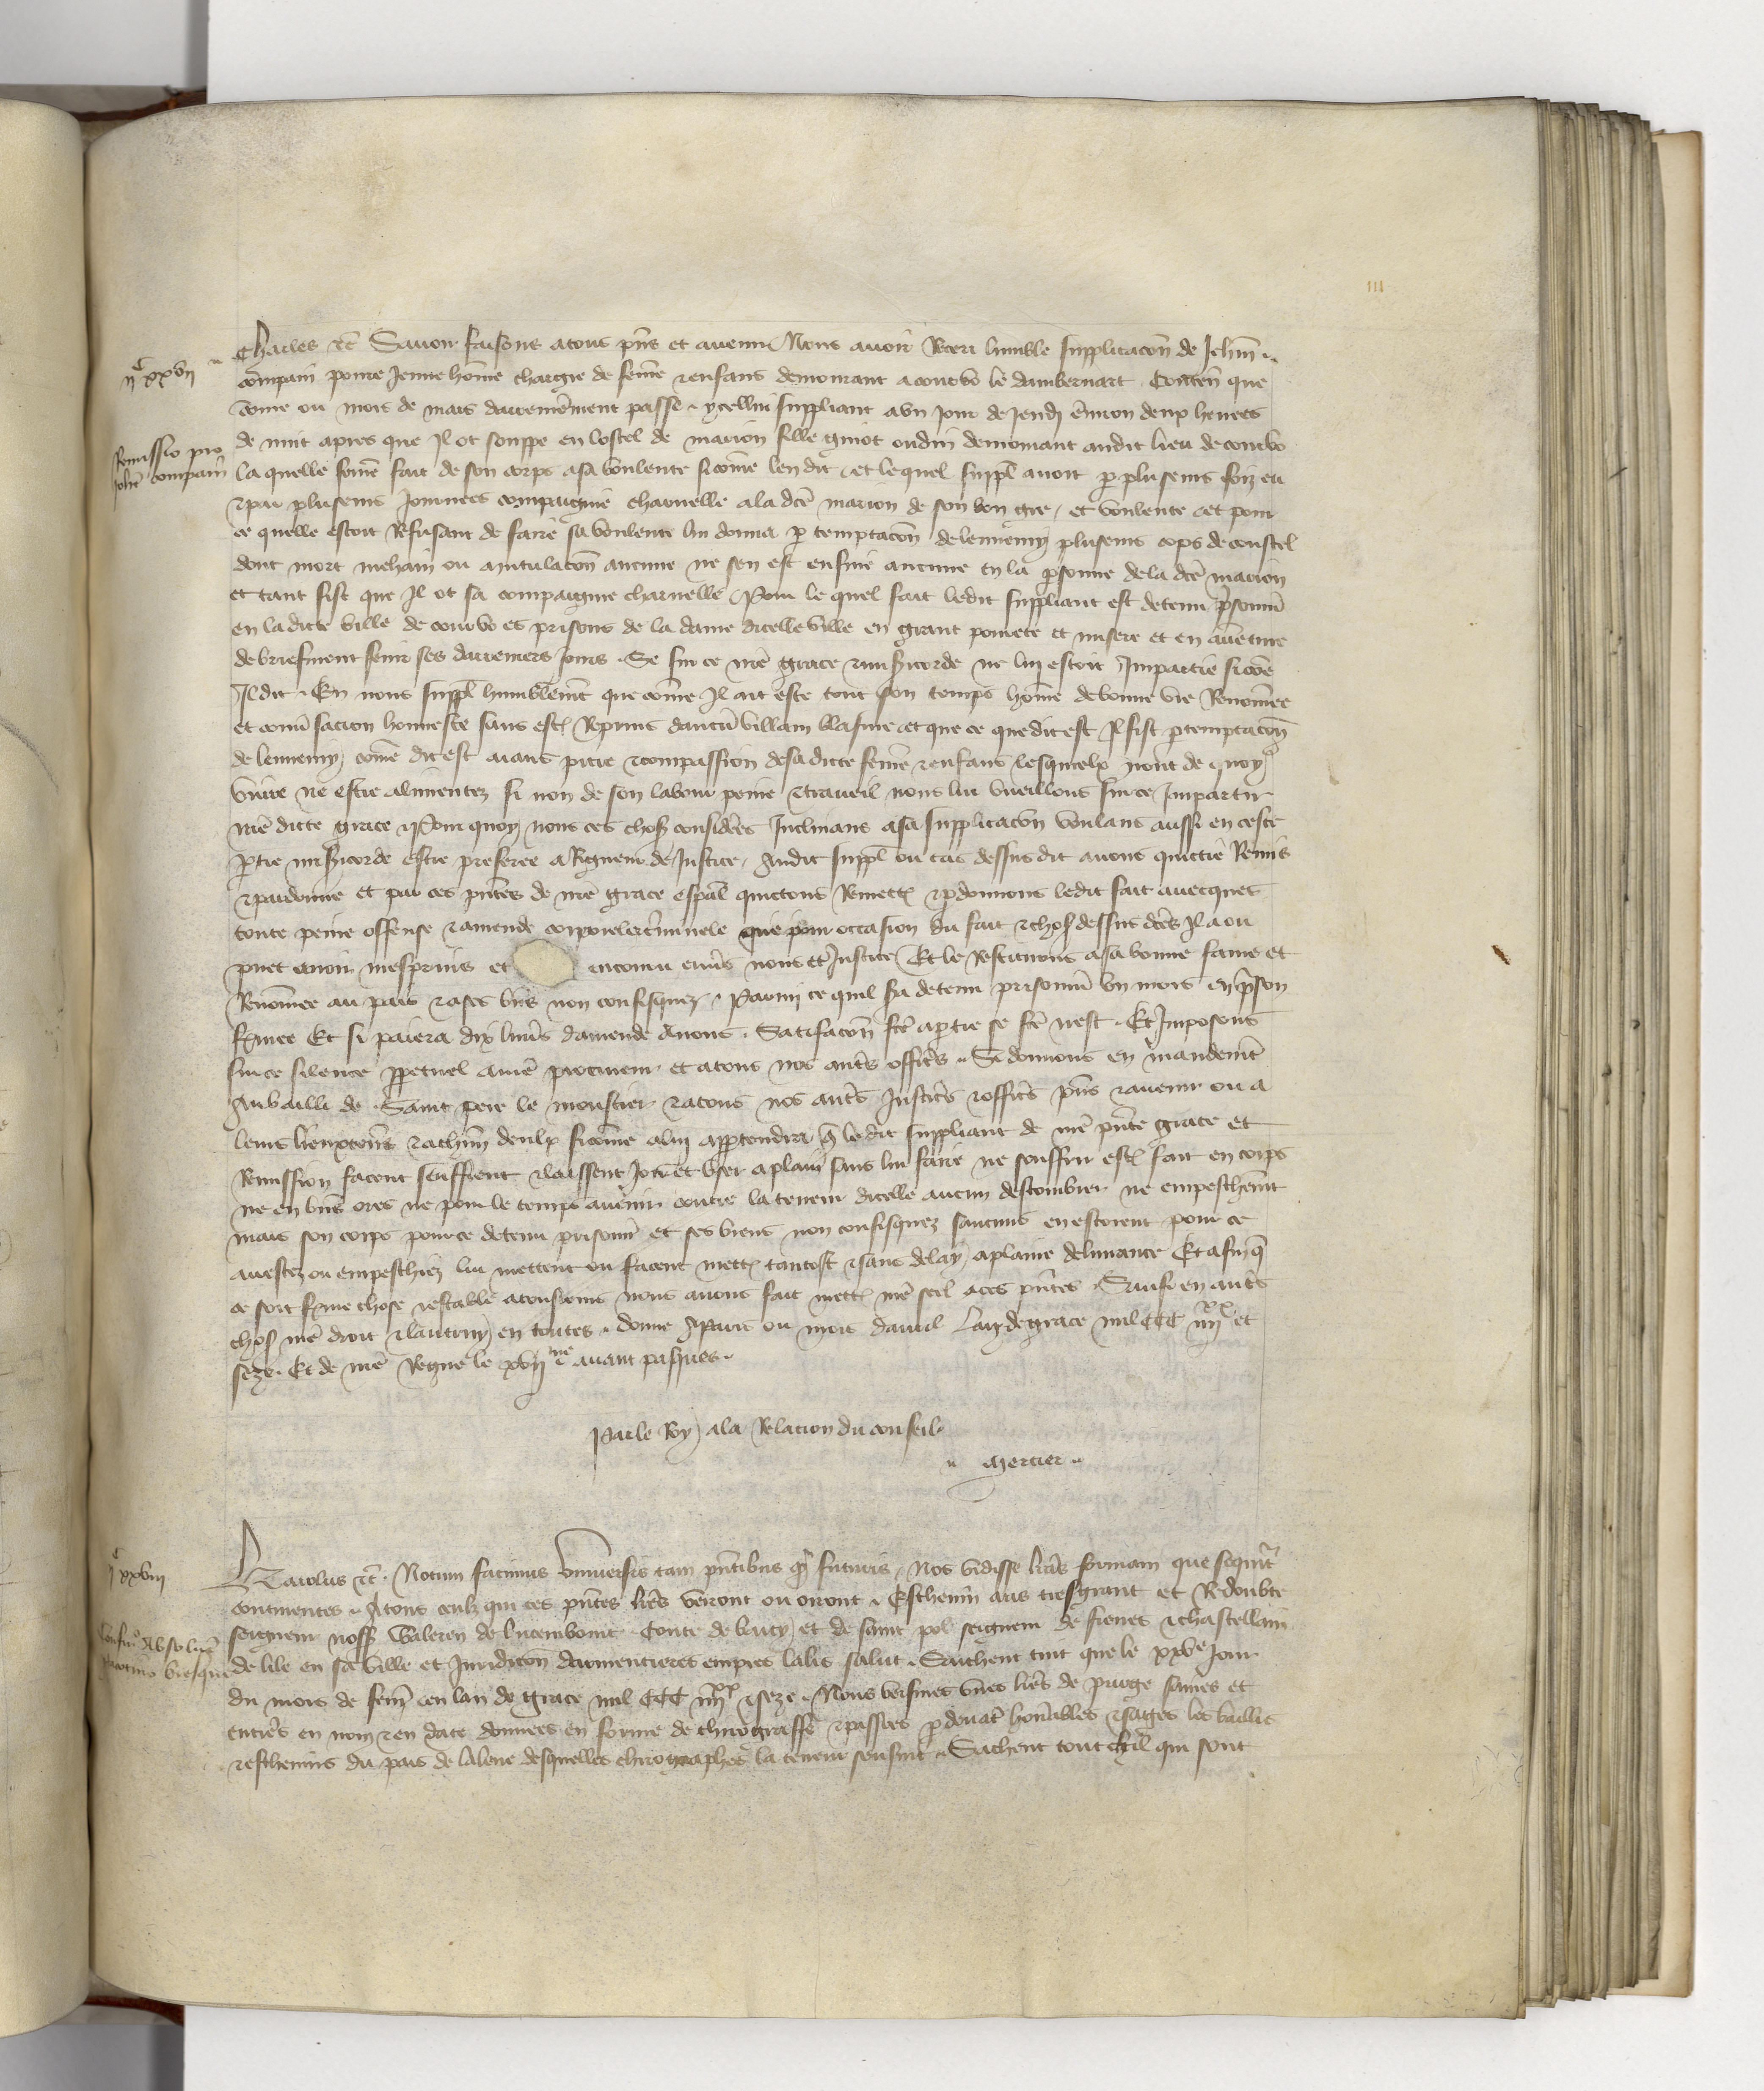 III
IIc XXVII
Charles etc̃ Savoir faisons a tous pñs et avenir Nous avoir Receu humble supplicacõn de Jehñ
Compain povre Jeune hõme chargie de fem̃e et enfans demourant a courvo le dambernart Conteñ que
cõme ou mois de mars darrenierement passe ycellui suppliant a un jour de Jeudi environ deux heures
Remissio pro
Johẽ compain
de nuit apres que Il ot souppe en lostel de marion fille guiot oudin demourant audit lieu de courvo
la quelle fem̃e fait de son corps a sa voulente si cõme len dit et lequel suppl̃ avoit p plusieurs foiz eu
et par plusieurs Journees compaignie charnelle a la dc̃e marion de son bon gre et voulente et pour
ce quelle estoit Refusant de faire sa voulente lui donna p temptacõn de lennemy plusieurs cops de coustel
dont mort mehain ou mutulacõn aucune ne sen est ensuie aucune en la psonne de la dc̃e marion
et tant fist que Il ot sa compaignie charnelle Pour le quel fait ledit suppliant est detenu prisonnĩ
en ladicte ville de courvo es prisons de la dame dicelle ville en grant povrete et misere et en aventure
de briefment fenir ses darreniers jours Se sur ce nr̃e grace et misericorde ne lui estoit Impartie si cõe
Il dit En nous suppl̃ humblemt que cõme Il ait este tout son temps hõme de bonne vie Renõmee
et conv̾sacion honneste sans est̾ Reprins daucũ villain blasme et que ce que dit est Il fist p temptacõn
de lennemy cõme dit est aians pitie et compassion de sa dicte fem̃e et enfans lesquielx nont de quoy
vivre ne estre alimentez si non de son labour peine et travail nous lui vueillons sur ce Impartir
nr̃e dicte grace Pour quoy nous ces choses considerees Inclinans a sa supplicacõn voulans aussi en ceste
ptie misericorde estre preferee a Rigueur de Justice Audit suppl̃ ou cas dessus dit avons quictie Remis
et pardonne et par ces pñtes de nr̃e grace esp̃al quictons Remett̾ et pdonnons ledit fait avecques
toute peine offense et amende corporele et criminele que pour occasion du fait et choses dessus dc̃es Il a ou
puet avoir mesprins et encouru envs nous et Justice Et le Restituons a sa bonne fame et
Renõmee au pais et a ses biẽs non confisquez Parmi ce quil sera detenu prisonnĩ un mois en prison
fermee Et si paiera dix livrs damende A nous Satifacõn fc̃e a ptie se fc̃e nest Et Imposons
sur ce silence ppetuel a nr̃e procureur et a tous nos autrs officrs Si donnons en mandemt
Au bailli de Saint pere le moustier et a tous nos autrs Justicrs et officrs pñs et avenir ou a
leurs lieuxtenns et a chñn deulx si cõme a lui appartendra q̃ ledit suppliant de nr̃e pñte grace et
Remission facent seuffrent et laissent joir et user a plain sans lui faire ne souffrir est̾ fait en corps
ne en biẽs ores ne pour le temps avenir contre la teneur dicelle aucun destourbier ne empeschemt
mais son corps pour ce detenu prisonnĩ et ses biens non confisquez saucuns en estoient pour ce
arrestez ou empeschiez lui mettent ou facent mett̾ tantost et sans delay a plaine delivrance Et afin q̃
ce soit ferme chose et estable a tousjours nous avons fait mett̾ nr̃e seel a ces pñtes Sauf en autrs
choses nr̃e droit et lautruy en toutes donne A Paris ou mois davril Lan de grace mil CCC IIIIxx et
seze Et de nr̃e Regne le XVIIme avant pasques
Par le Roy a la Relacion du conseil
Mercier
IIc XXVIII
Karolus etc̃ Notum facimus Universis tam pñtibus q̃ futuris Nos vidisse lr̃as formam que sequitur
continentes A tous ceulx qui ces pñtes lr̃es verront ou orront Eschevin au tresgrant et Redoubte
seigneur noss̾ Waleren de lucembourc Conte de liney et de saint pol seigneur de fienes et chastellain
de lile en sa ville et Juridicõn darmentieres empres labie salut Sachent tuit que le XXVe jour
du mois de fevr̃ en lan de grace mil CCC IIIIxx et seze Nous veismes unes lr̃es de purge saines et
entierẽs en nom et en date donnees en forme de chirograffe et passees p devãt honnorables et sages les baillis
et eschevins du pais de laleue desquelles chirographes la teneur sensuit Sachent tout chil qui sont